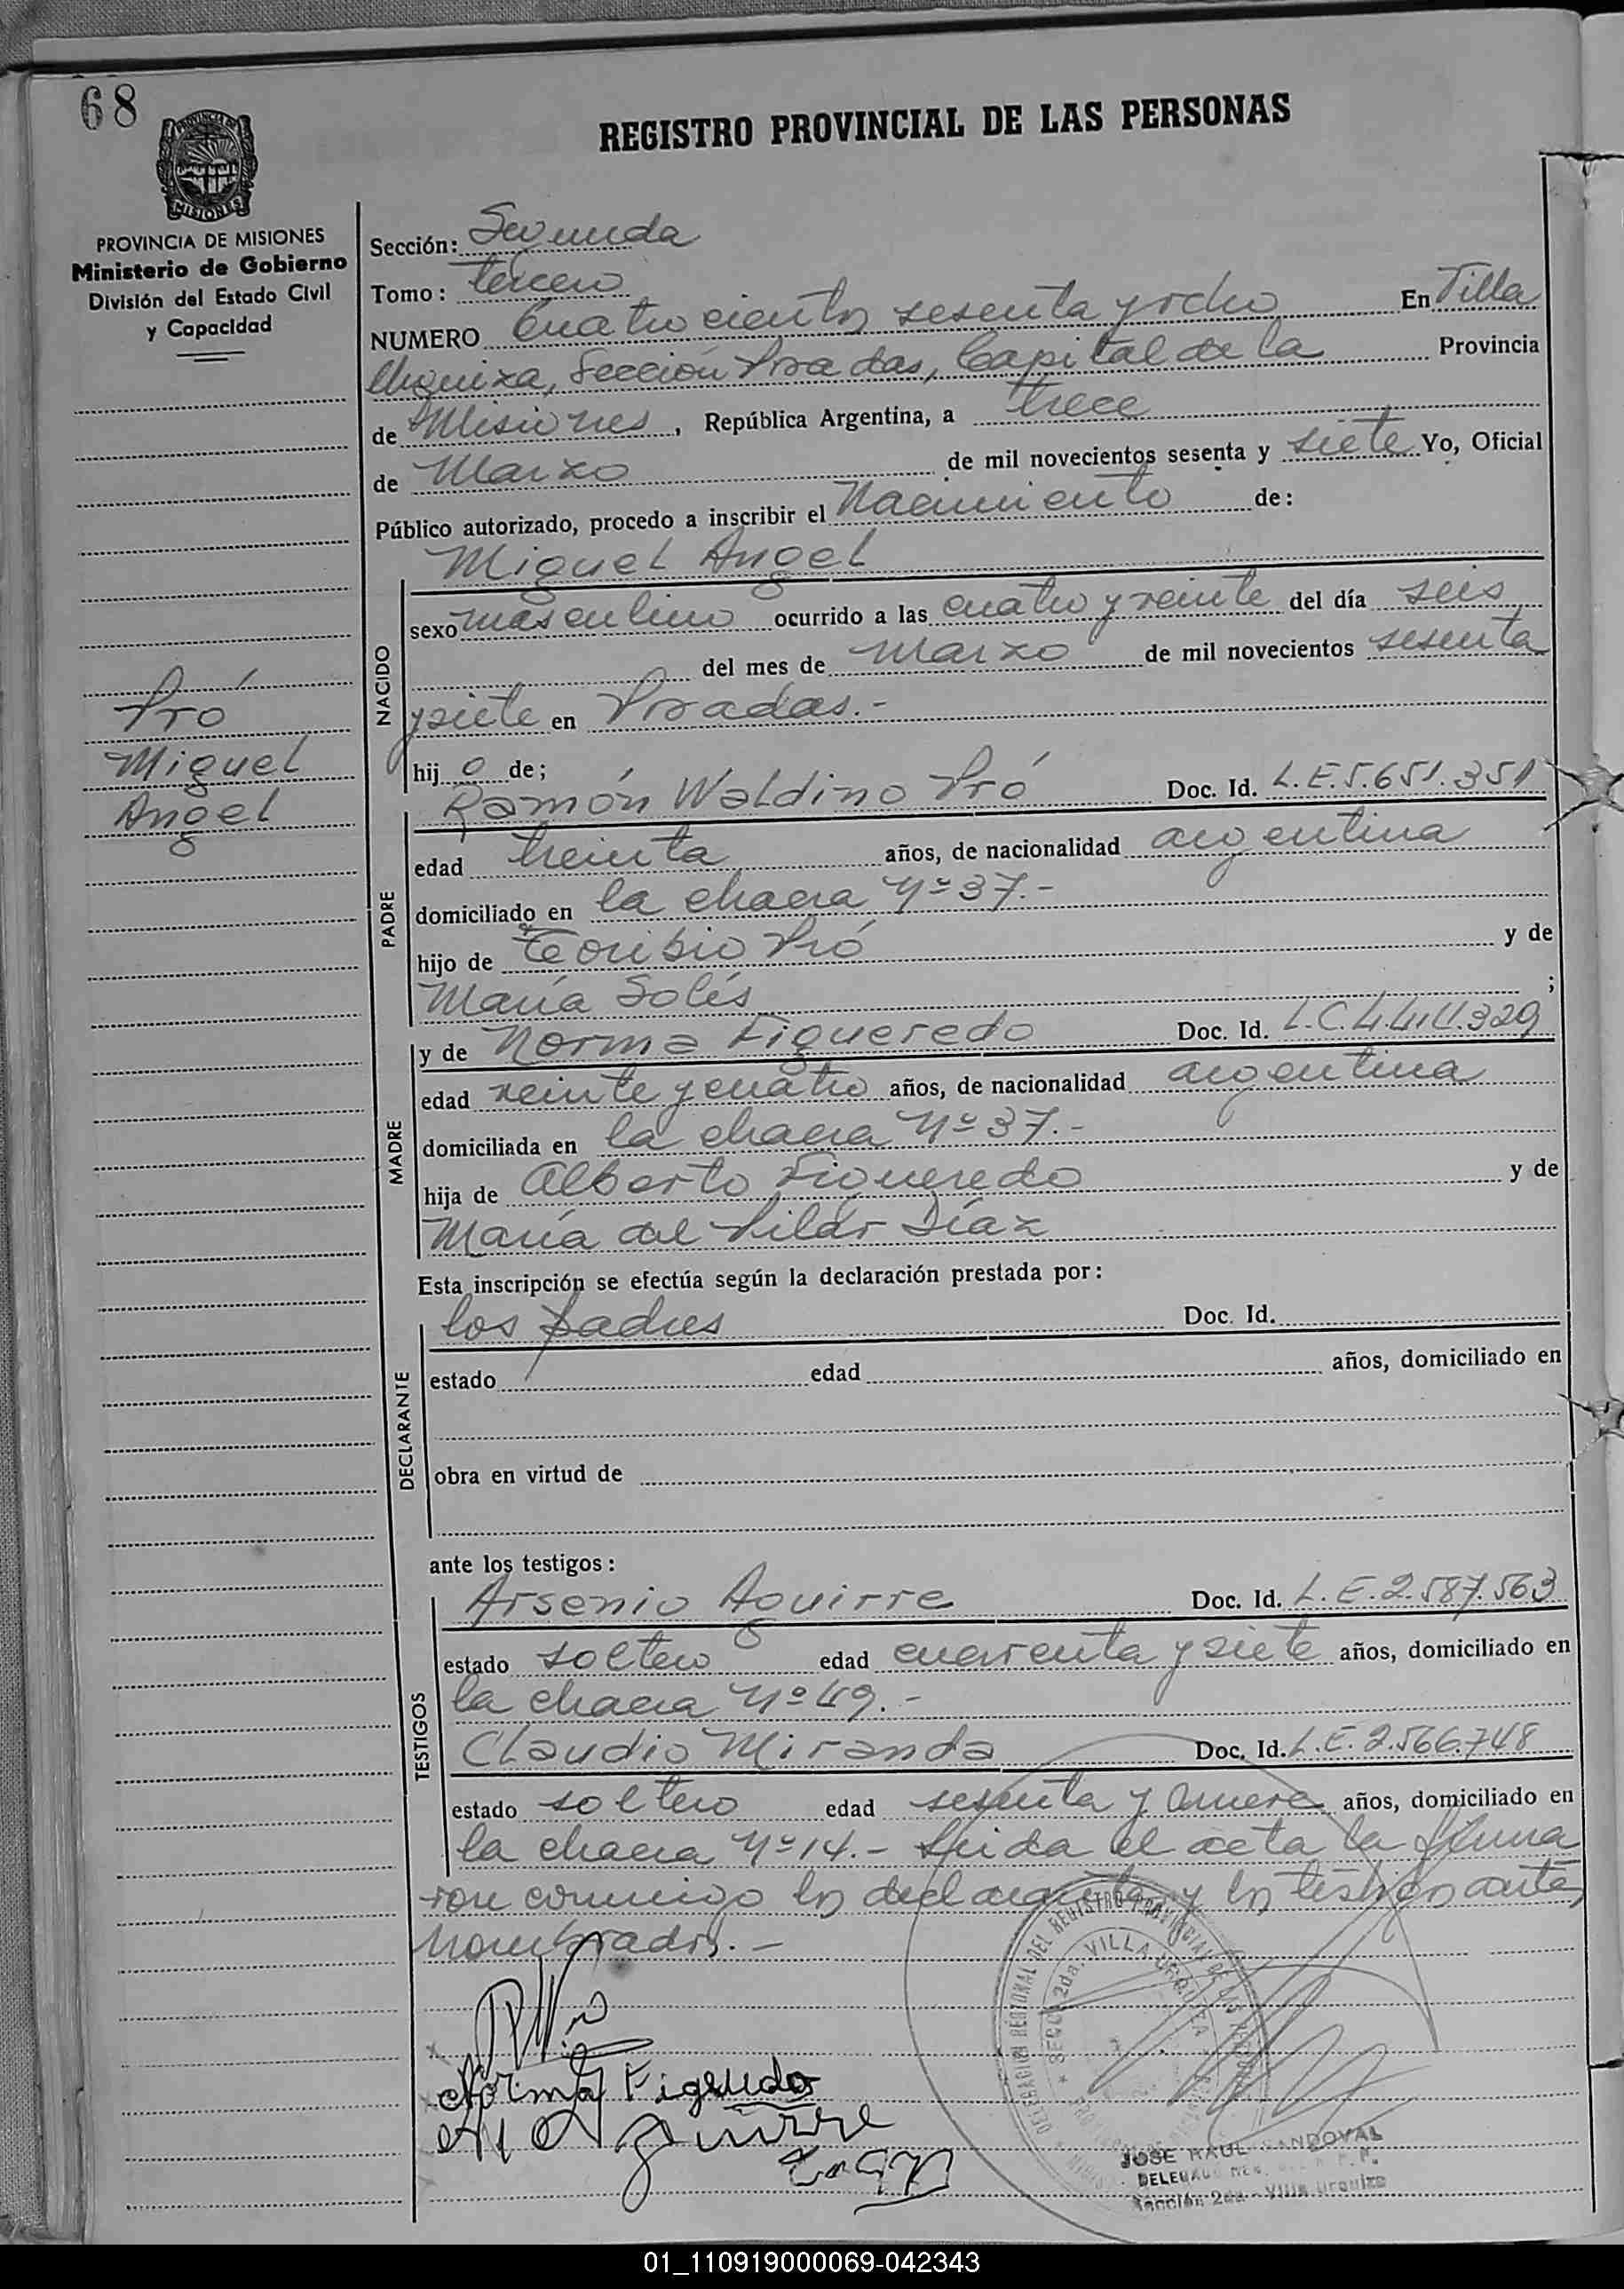 68
REGISTRO PROVINCIAL DE LAS PERSONAS
PROVINCIA DE
MISIONES
PROVINCIA DE MISIONES
Ministerio de Gobierno
División del Estado Civil
y Capacidad
Sección: Segunda
Tomo: tercero
NUMERO Cuatrocientos sesenta y ocho En Villa
Urquiza, Sección Posadas, Capital de la Provincia
de Misiones, República Argentina, a trece
de Marzo de mil novecientos sesenta y siete Yo, Oficial
Público autorizado, procedo a inscribir el Nacimiento de:
Miguel Angel
NACIDO
sexo masculino ocurrido a las cuatro y veinte del día seis
del mes de marzo de mil novecientos sesenta
y siete en Posadas.-
Pró
Miguel
Angel
hij o de;
Ramón Waldino Pró Doc. Id. L.E.5.651.351
PADRE
edad treinta años, de nacionalidad argentina
domiciliado en la chacra Nº 37.-
hijo de Toribio Pró y de
María Solís ;
y de Norma Figueredo Doc. Id. L.C.
MADRE
edad veinte y cuatro años, de nacionalidad argentina
domiciliada en la chacra Nº 37.-
hija de Alberto Figueredo y de
María del Pilar Díaz
Esta inscripción se efectúa según la declaración prestada por:
los padres Doc. Id.
DECLARANTE
estado edad años, domiciliado en
obra en virtud de
ante los testigos:
Arsenio Aguirre Doc. Id. L.E.2.587.563
TESTIGOS
estado soltero edad cuarenta y siete años, domiciliado en
la chacra Nº 49.-
Claudio Miranda Doc. Id. L.E.2.566.748
estado soltero edad sesenta y años, domiciliado en
la chacra Nº 14.- Leida el acta la firma
ron conmigo los declarantes y los testigos antes
nombrados.-
Norma Figueredo
Aguirre
DELEGACION REGIONAL DEL REGISTRO PROVINCIAL DE LAS
SECC. 2da. VILLA URQUIZA
JOSE RAUL SANDOVAL
DELEGADO
Sección 2da - Villa Urquiza
01_110919000069-042343